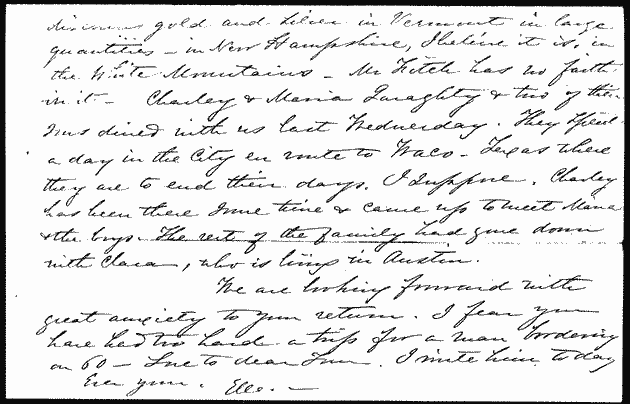 discovers gold and silver in Vermont in large
quantities - in New Hampshire, I believe it is, in
the White Mountains - Mr Fitch has no faith
in it - Charley & Maria Garaghty & two of their
sons dined with us last Wednesday. They spent
a day in the City en route to Waco - Texas where
they are to end their days, I suppose. Charley
has been there some time & came up to meet Maria
& the boys. The rest of the family had gone down
with Clara, who is living in Austin.
We are looking forward with
great anxiety to your return. I fear you
have had too hard a trip for a man bordering
on 60 - Love to dear I write him today
Ever your. Ella. -